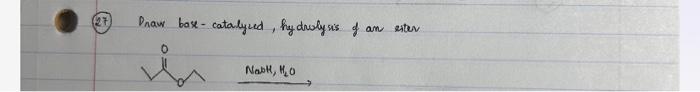 27 Draw base-catalyzed, hydrolysis of an ester
O
O
NaOH, H₂O